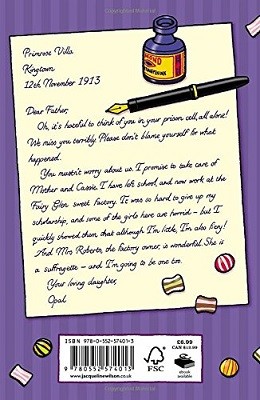 Primrose Villa
Kingtown
12th November 1913
Dear Father,
Oh, it's hateful to think of you in your prison cell, all alone!
We miss you terribly. Please don't blame yourself for what
happened.
You mustn't worry about us. I promise to take care of
Mother and Cassie. I have left school, and now work at the
Fairy Glen sweet factory. It was so hard to give up my
scholarship, and some of the girls here are horrid – but I
quickly showed them that although I'm little, I'm also fiery!
And Mrs Roberts, the factory owner, is wonderful. She is
a suffragette – and I'm going to be one too.
Your loving daughter,
Opal
ISBN 978-0-552-57401-3
9 780552 574013
www.jacquelinewilson.co.uk
FSC
£6.99
ebook
available